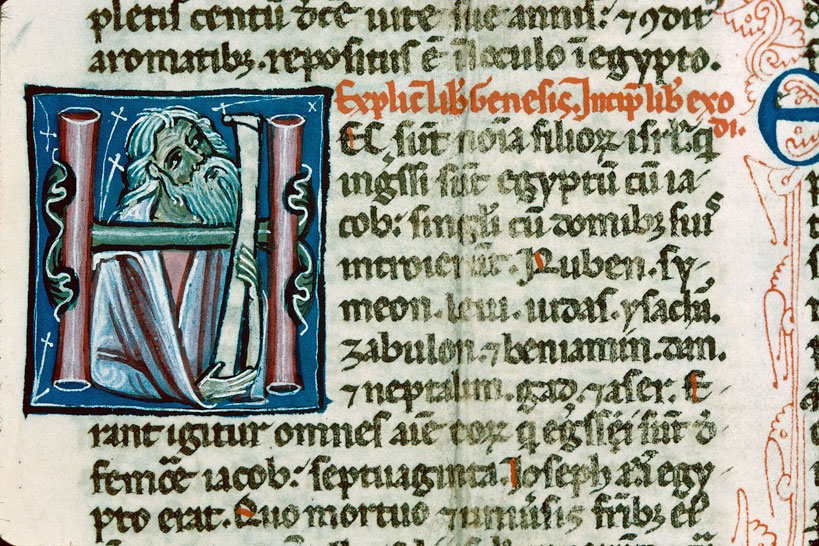 pletis centū dēē uite sue annis. ⁊ ꝯdit᷒
aromatibꝫ. repositus ē ī loculo ī egypto.
Explic̄ lib̄ genesis. Incip̄ lib̄ exo
di.
EC sūt noīa filioꝝ isrl̄. q̄
ingssi sūt egyptū cū ia-
cob: singl̄i cū domibꝫ suis
introierūt. Ruben. sy-
meon. leui. iudas. ysachā.
zabulon. ⁊ beniamin. dan.
⁊ neptalim. gad. ⁊ aser. E-
rant igitur omnes aīe eoꝝ q̄ eg̊ssei sūt d̄
femoē iacob: septuaginta. Ioseph aūt ī egy
pto erat. Quo mortuo ⁊ uniuūsis fr̄ibꝫ ei᷒